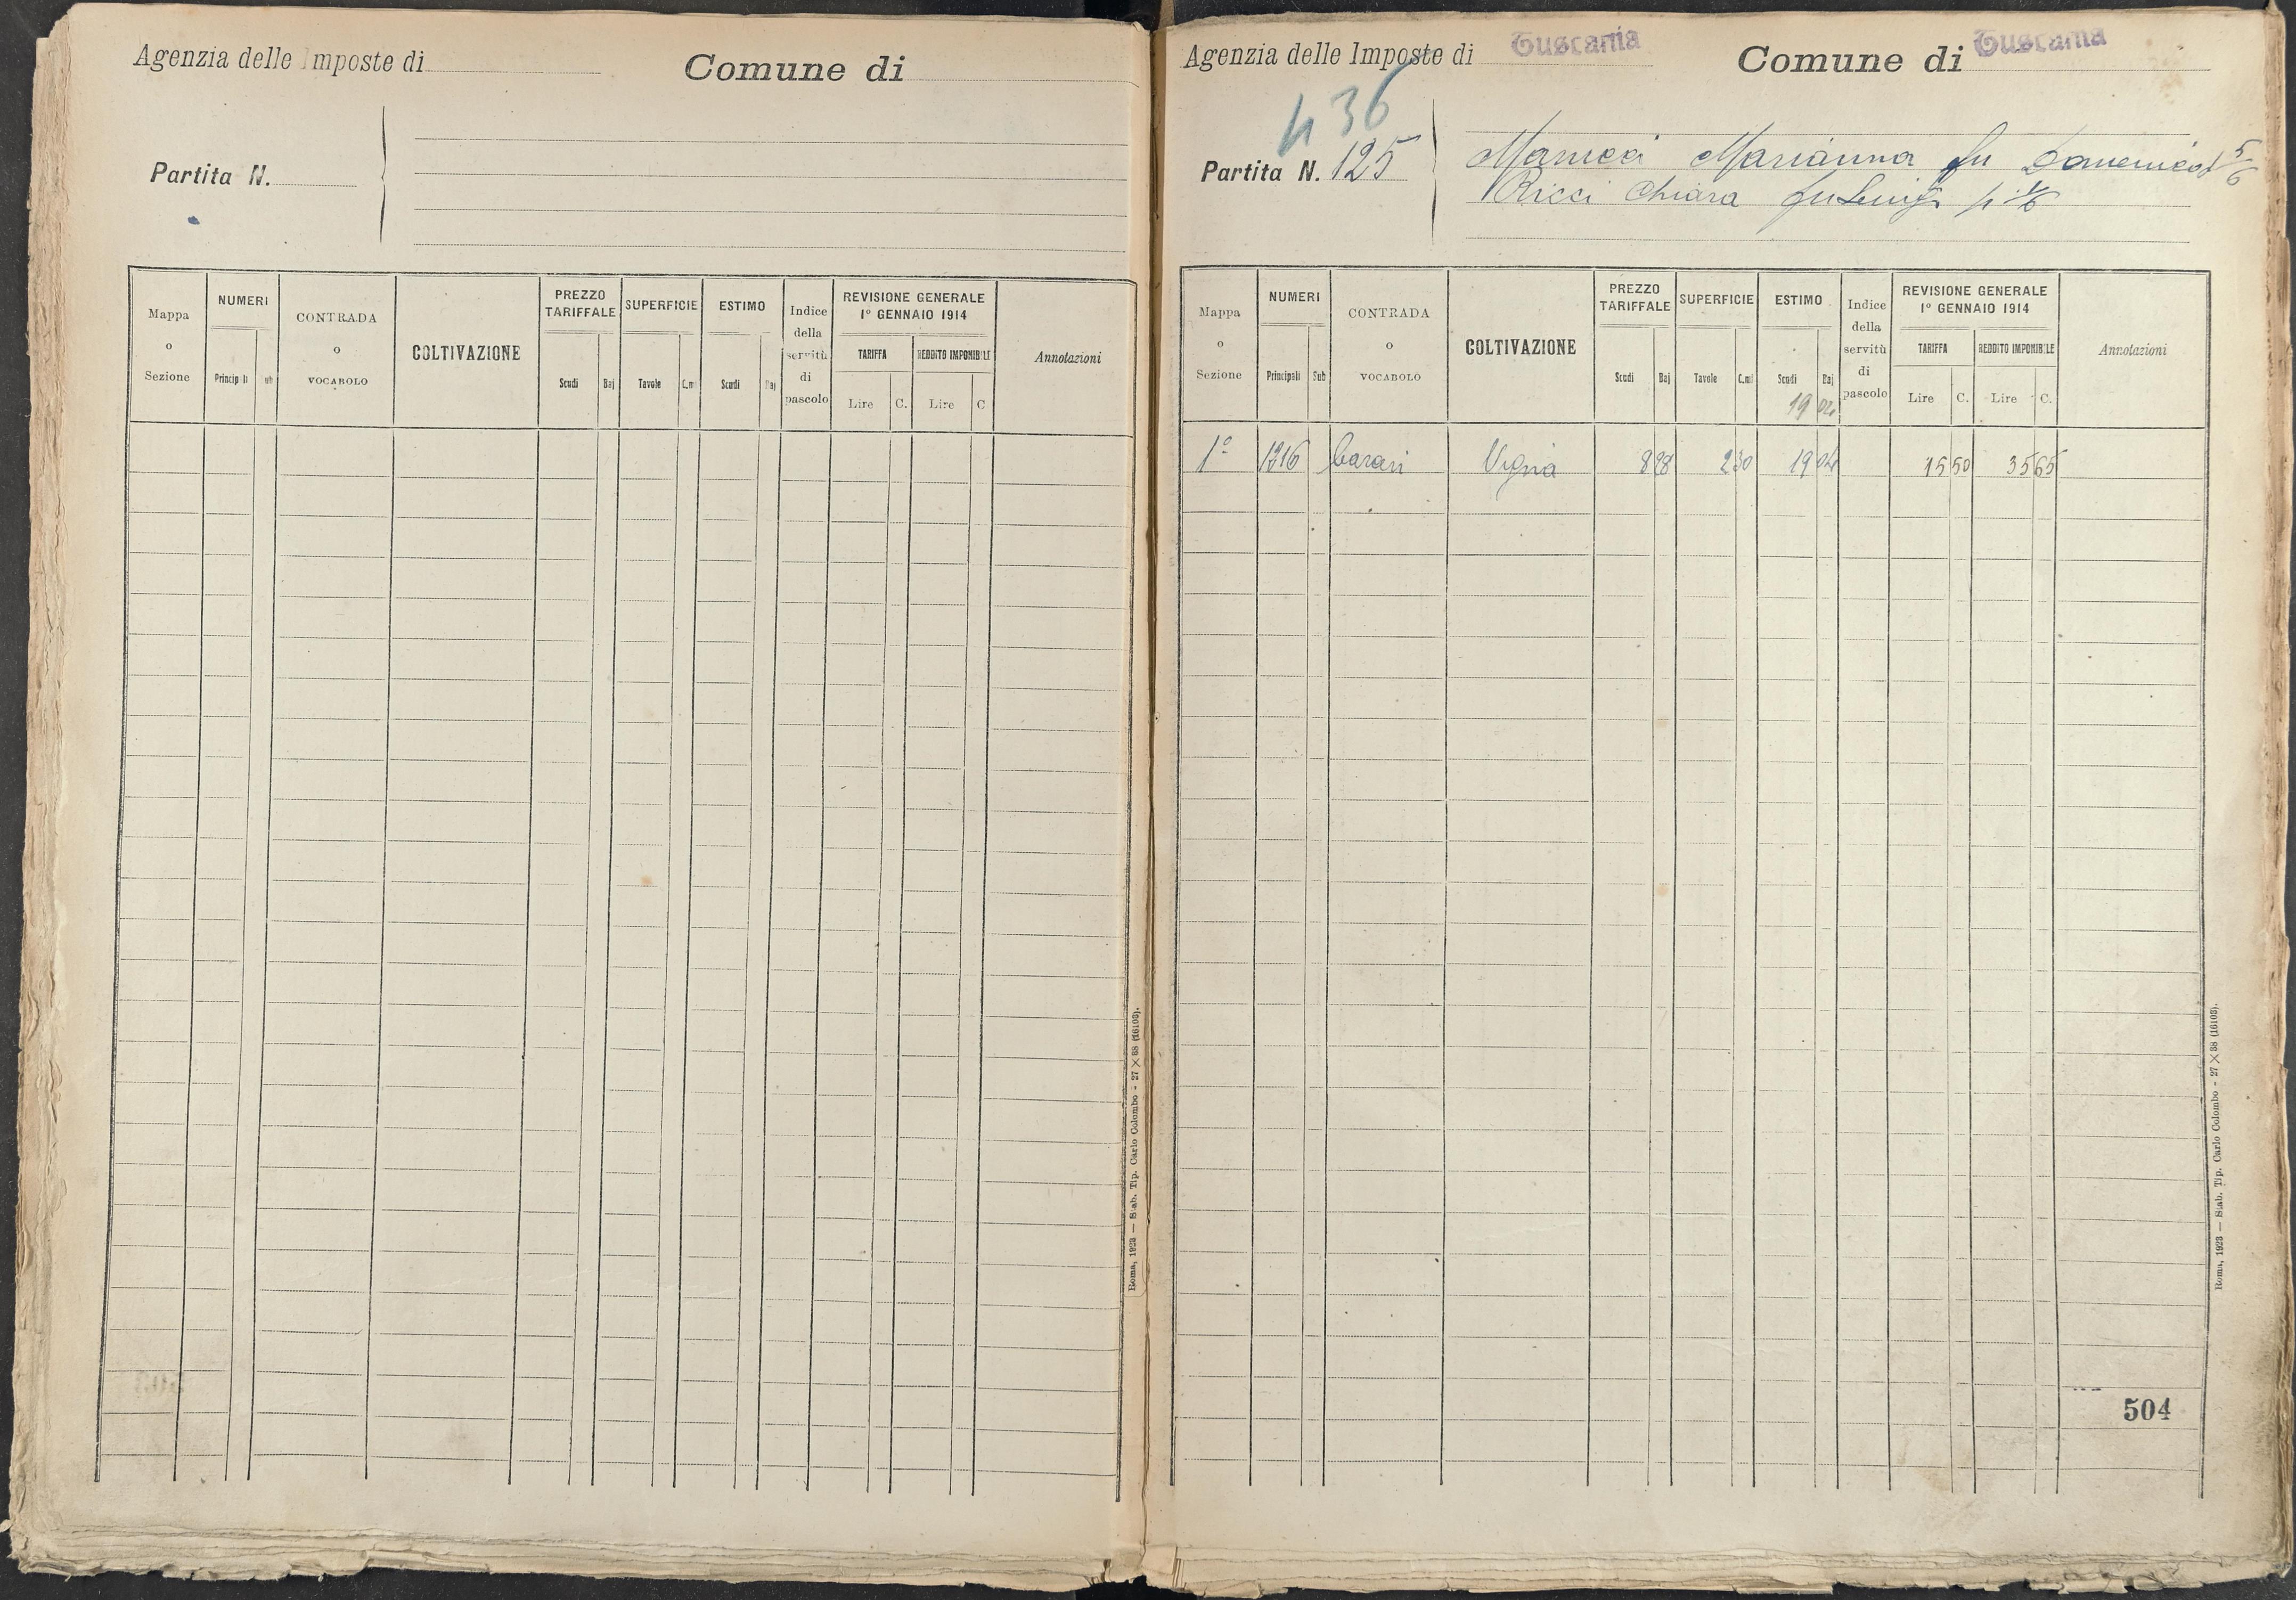 Agenzia delle Imposte di
Comune di
Partita N.
Mappa o Sezione
NUMERI
Principali
Sub
CONTRADA o VOCABOLO
COLTIVAZIONE
PREZZO TARIFFALE
Scudi Baj
SUPERFICIE
Tavole C.mi
ESTIMO
Scudi Baj
Indice della servitù di pascolo
REVISIONE GENERALE
1° GENNAIO 1914
TARIFFA
Lire C.
REDDITO IMPONIBILE
Lire C
Annotazioni
Roma, 1923 — Stab. Tip. Carlo Colombo - 27 × 38 (16103).
Agenzia delle Imposte di Tuscania
Comune di Tuscania
436
Partita N. 125
Marianna fu Domenico 5/6
Ricci Chiara fu Luigi p 1/6
Mappa o Sezione
NUMERI
Principali Sub
CONTRADA o VOCABOLO
COLTIVAZIONE
PREZZO TARIFFALE
Scudi Baj
SUPERFICIE
Tavole C.mi
ESTIMO
Scudi Baj
19 04
Indice della servitù di pascolo
REVISIONE GENERALE
1° GENNAIO 1914
TARIFFA
Lire C.
REDDITO IMPONIBILE
Lire C.
Annotazioni
1° 1216 Vigna 8 28 2 30 19 04 15 50 35 65
504
Roma, 1923 — Stab. Tip. Carlo Colombo - 27 × 38 (16103).